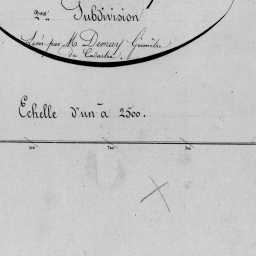 2me Subdivision
Levé par Mr Demay Géomètre
du Cadastre.
Echelle d'un à 2500.